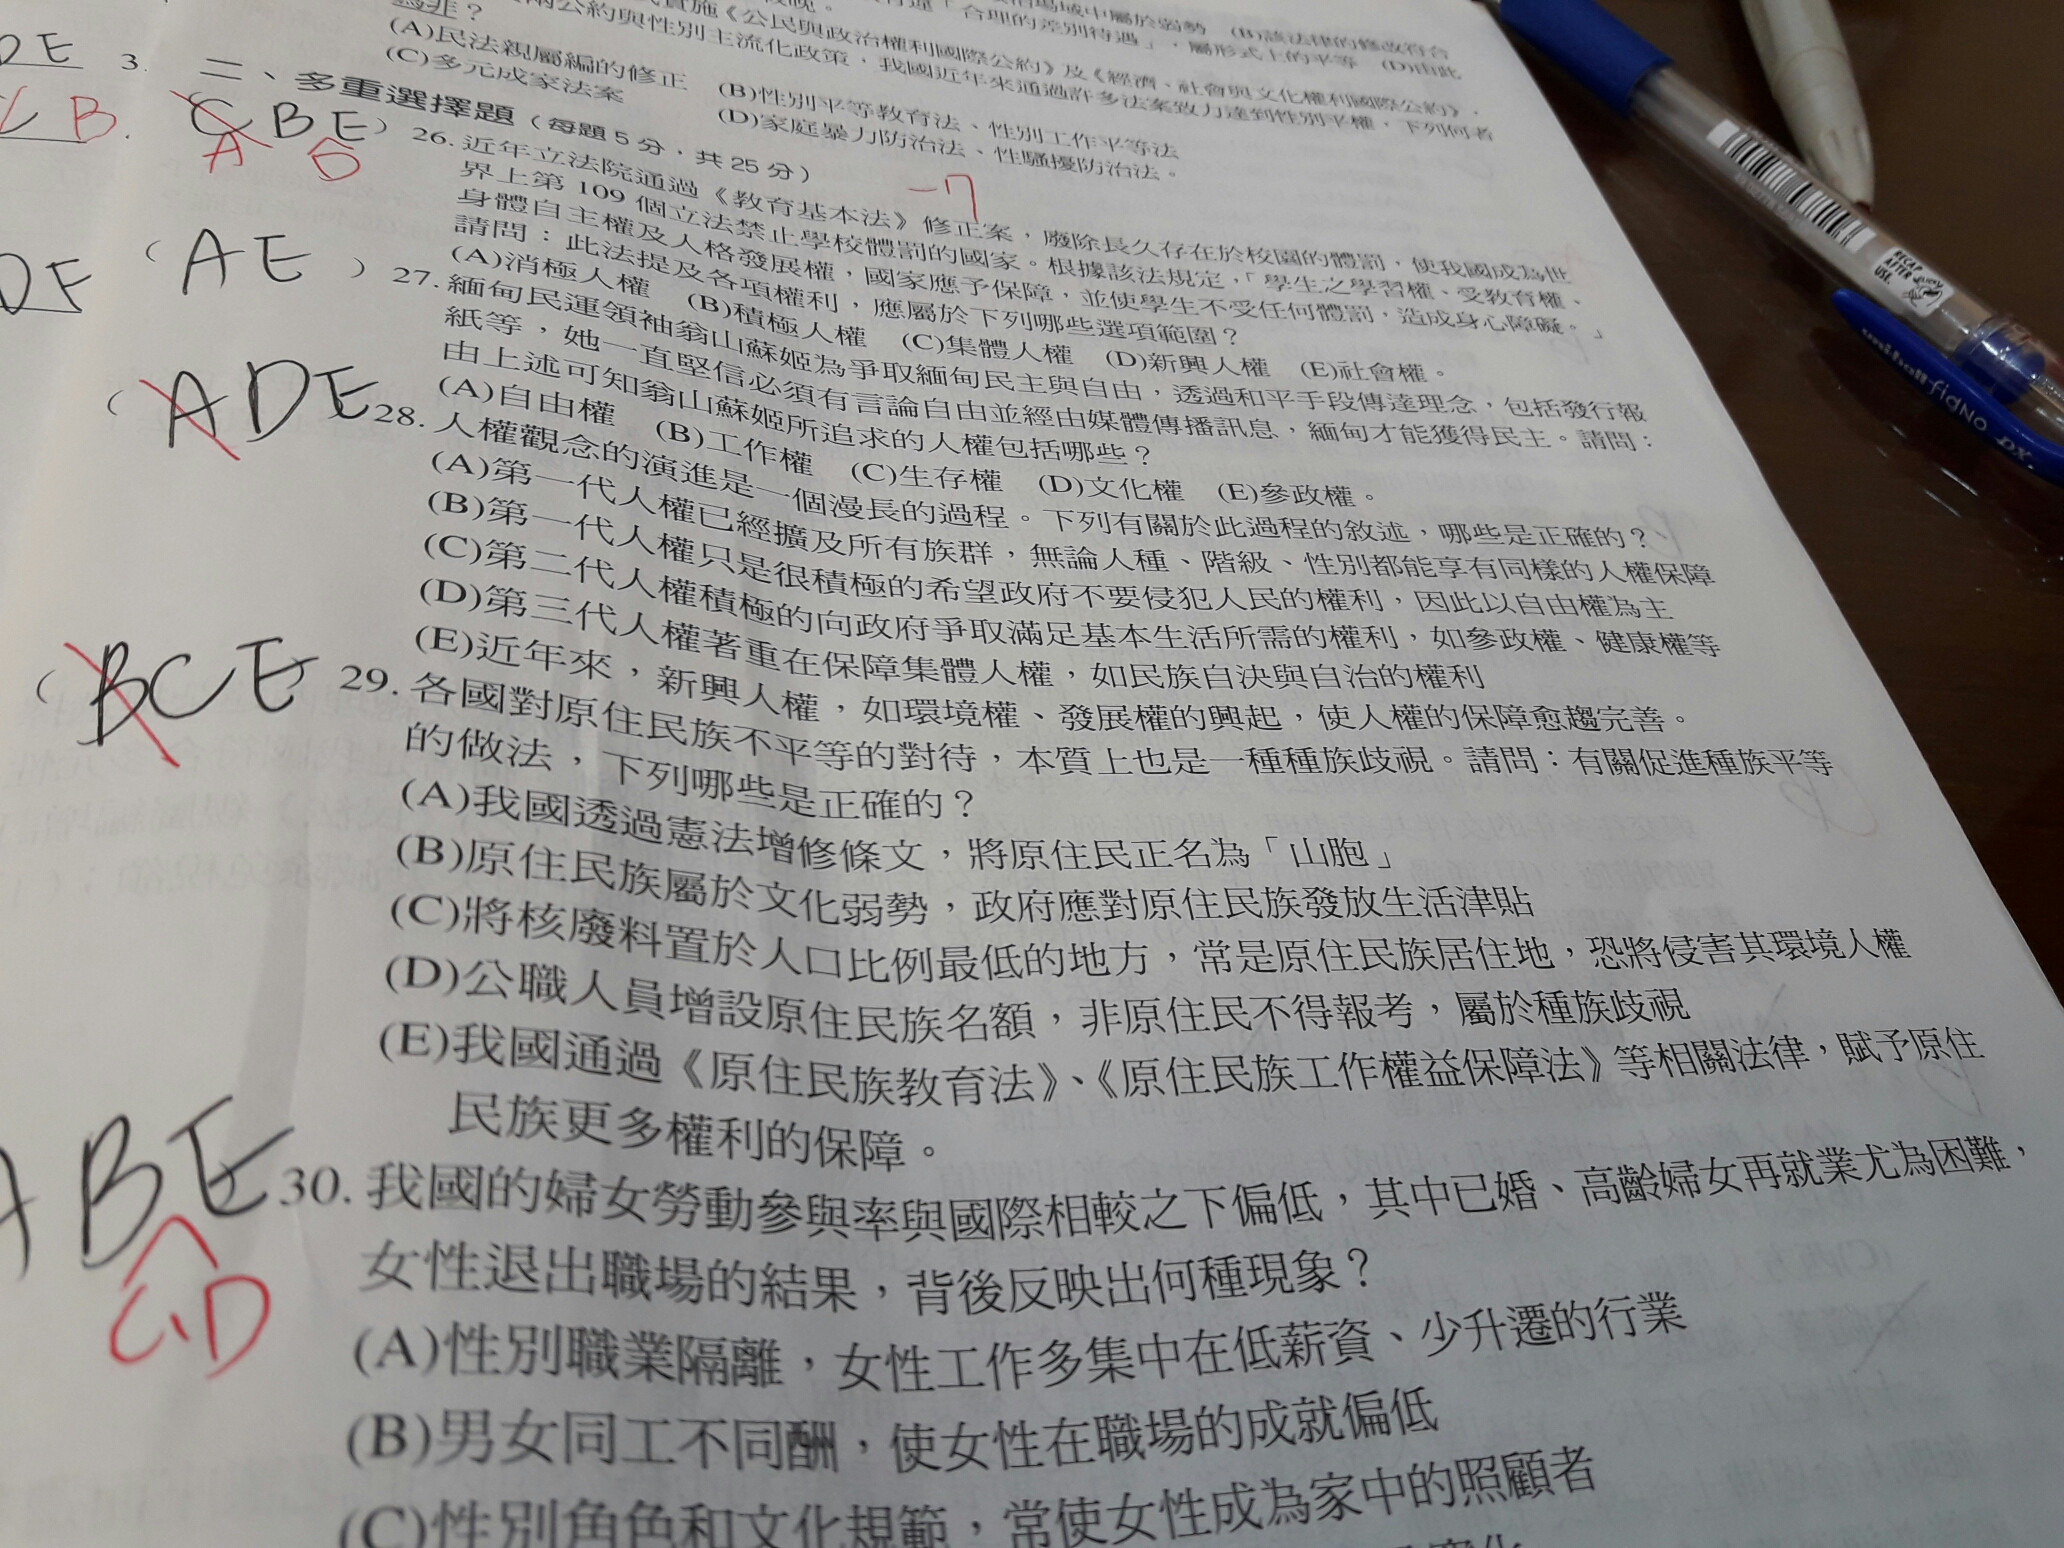 為非？
(A)民法親屬編的修正 (B)性別平等教育法、性別工作平等法
(C)多元成家法案 (D)家庭暴力防治法、性騷擾防治法。
DE
3.
二、多重選擇題（每題5分，共25分）
B.
C B E )
A D
-7
26. 近年立法院通過《教育基本法》修正案，廢除長久存在於校園的體罰，使我國成為世
界上第 109 個立法禁止學校體罰的國家。根據該法規定，「學生之學習權、受教育權、
身體自主權及人格發展權，國家應予保障，並使學生不受任何體罰，造成身心障礙。」
請問：此法提及各項權利，應屬於下列哪些選項範圍？
(A)消極人權 (B)積極人權 (C)集體人權 (D)新興人權 (E)社會權。
( AE )
27. 緬甸民運領袖翁山蘇姬為爭取緬甸民主與自由，透過和平手段傳達理念，包括發行報
紙等，她一直堅信必須有言論自由並經由媒體傳播訊息，緬甸才能獲得民主。請問：
由上述可知翁山蘇姬所追求的人權包括哪些？
(A)自由權 (B)工作權 (C)生存權 (D)文化權 (E)參政權。
( ADE
28. 人權觀念的演進是一個漫長的過程。下列有關於此過程的敘述，哪些是正確的？
(A)第一代人權已經擴及所有族群，無論人種、階級、性別都能享有同樣的人權保障
(B)第一代人權只是很積極的希望政府不要侵犯人民的權利，因此以自由權為主
(C)第二代人權積極的向政府爭取滿足基本生活所需的權利，如參政權、健康權等
(D)第三代人權著重在保障集體人權，如民族自決與自治的權利
(E)近年來，新興人權，如環境權、發展權的興起，使人權的保障愈趨完善。
( BCE
29. 各國對原住民族不平等的對待，本質上也是一種種族歧視。請問：有關促進種族平等
的做法，下列哪些是正確的？
(A)我國透過憲法增修條文，將原住民正名為「山胞」
(B)原住民族屬於文化弱勢，政府應對原住民族發放生活津貼
(C)將核廢料置於人口比例最低的地方，常是原住民族居住地，恐將侵害其環境人權
(D)公職人員增設原住民族名額，非原住民不得報考，屬於種族歧視
(E)我國通過《原住民族教育法》、《原住民族工作權益保障法》等相關法律，賦予原住
民族更多權利的保障。
ABE
C、D
30. 我國的婦女勞動參與率與國際相較之下偏低，其中已婚、高齡婦女再就業尤為困難，
女性退出職場的結果，背後反映出何種現象？
(A)性別職業隔離，女性工作多集中在低薪資、少升遷的行業
(B)男女同工不同酬，使女性在職場的成就偏低
(C)性別角色和文化規範，常使女性成為家中的照顧者
RECAP
AFTER
USE.